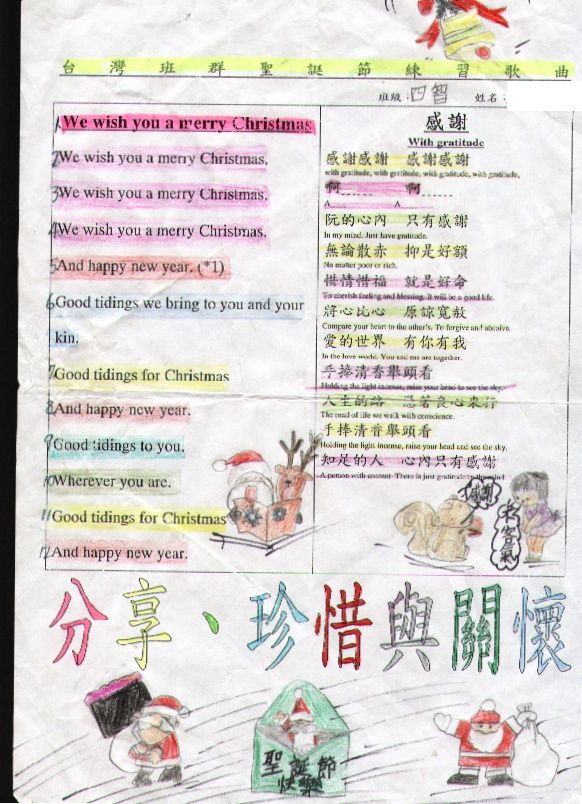 台灣班群聖誕節練習歌曲
班級：四智 姓名：
1 We wish you a merry Christmas
2 We wish you a merry Christmas.
3 We wish you a merry Christmas.
4 We wish you a merry Christmas.
5 And happy new year. (*1)
6 Good tidings we bring to you and your
kin.
7 Good tidings for Christmas
8 And happy new year.
9 Good tidings to you.
10 Wherever you are.
11 Good tidings for Christmas
12 And happy new year.
感謝
With gratitude
感謝感謝 感謝感謝
with gratitude, with gratitude, with gratitude, with gratitude,
啊...... 啊......
A...... A......
阮的心內 只有感謝
In my mind. Just have gratitude.
無論散赤 抑是好額
No matter poor or rich.
惜情惜福 就是好命
To cherish feeling and blessing. It will be a good life.
將心比心 原諒寬赦
Compare your heart to the other's. To forgive and absolve.
愛的世界 有你有我
In the love world. You and me are together.
手捧清香舉頭看
Holding the light incense, raise your head to see the sky.
人生的路 憑著良心來行
The road of life we walk with conscience.
手捧清香舉頭看
Holding the light incense, raise your head and see the sky.
知足的人 心內只有感謝
A person with content. There is just gratitude in the mind
感謝
不客氣
分享、珍惜與關懷
聖誕節
快樂